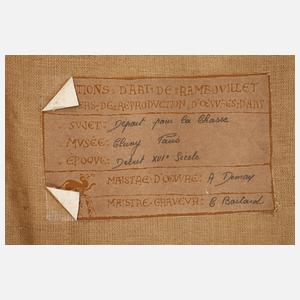 TIONS D'ART DE RAMBOUILLET
RS DE REPRODUCTION D'ŒUVRES D'ART
SUJET: Départ pour la Chasse
MUSÉE: Cluny Paris
ÉPOQUE: Début XVIe Siècle
MAISTRE D'ŒUVRE: A Demay
MAISTRE GRAVEUR: